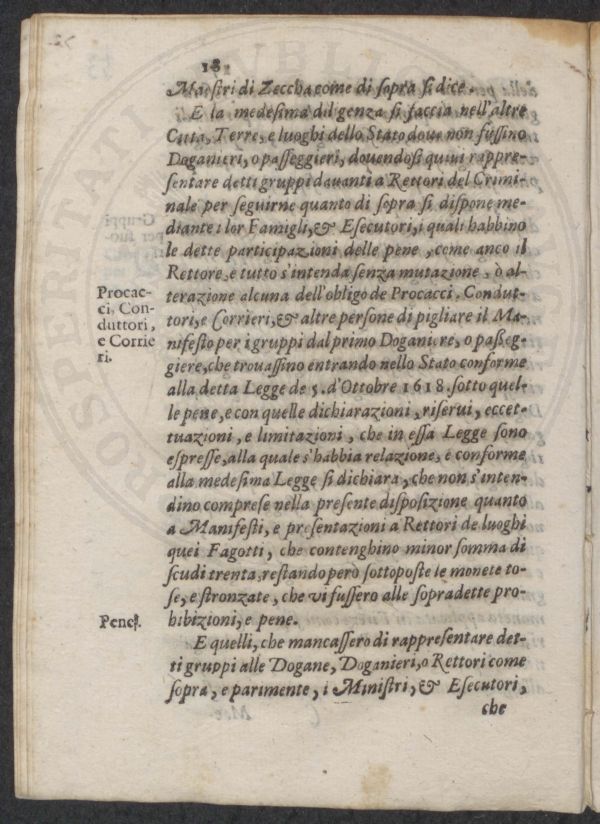 18,
Maeſtri di Zeccha come di ſopra ſi dice.
E la medeſima dil genza ſi faccia nell'altre
Citta, Terre, e luoghi dello Stato doue non fuſſino
Doganieri, o paſſeggieri, douendoſi quiui rappre-
ſentare detti gruppi dauanti a Rettori del Crimi-
nale per ſeguirne quanto di ſopra ſi diſpone me-
diante i lor Famigli, & Eſecutori, i quali habbino
le dette participazioni delle pene, come anco il
Rettore, e tutto s'intenda ſenza mutazione, ò al-
Procac-
ci, Con-
duttori,
e Corrie
ri.
terazione alcuna dell'obligo de Procacci, Condut-
tori, e Corrieri, & altre perſone di pigliare il Ma-
nifeſto per i gruppi dal primo Doganiere, o paſſeg-
giere, che trouaſſino entrando nello Stato conforme
alla detta Legge de 5. d'Ottobre 1618. ſotto quel-
le pene, e con quelle dichiarazioni, riſerui, eccet-
tuazioni, e limitazioni, che in eſſa Legge ſono
eſpreſſe, alla quale s'habbia relazione, e conforme
alla medeſima Legge ſi dichiara, che non s'inten-
dino compreſe nella preſente diſpoſizione quanto
a Manifeſti, e preſentazioni a Rettori de luoghi
quei Fagotti, che contenghino minor ſomma di
ſcudi trenta, reſtando però ſottopoſte le monete to-
ſe, e ſtronzate, che vi fuſſero alle ſopradette pro-
hibizioni, e pene.
Pene.
E quelli, che mancaſſero di rappreſentare det-
ti gruppi alle Dogane, Doganieri, o Rettori come
ſopra, e parimente, i Miniſtri, & Eſecutori,
che